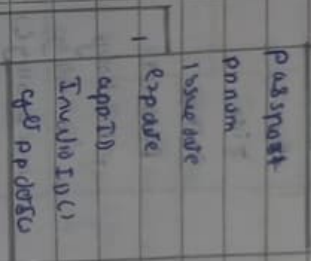 passport
ppnum
issuedate
expdate
appID
InvalidID()
get ppdets()
1